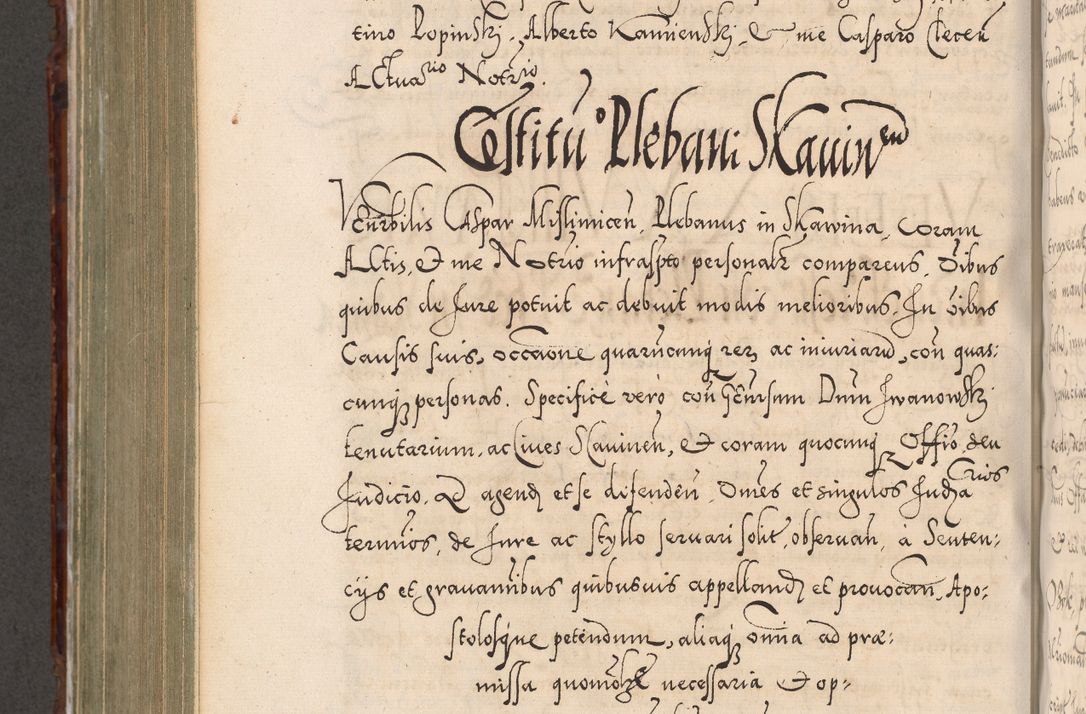 tino Popinski, Alberto Kamienski, & me Casparo Clecen
Actuario Notrio.
Costitu° Plebani Skauinen
Venrbilis Caspar Mislimicen, Plebanus in Skawina, Coram
Actis, & me Notrio infrascpto personalr compareus, oibus
quibus de Jure potuit ac debuit modis melioribus. In oibus
Causis suis, occaone quarucunq rer ac iniuriaru, con quas:
cunq personas. Specifice vero con Genrsum Dnum Iwanowski
tenutarium, ac Ciues Skauinen, & coram quocunq Offio seu
Judicio. Ad agend et se difenden, Omes et singulos Judia
crios
terminos, de Jure ac stylo seruari solit, obseruan, à Senten:
cijs et grauaminibus quibusuis appelland et prouocan, Apo:
stolosque petendum, aliaq omnia ad præ:
missa quomolt necessaria & op: